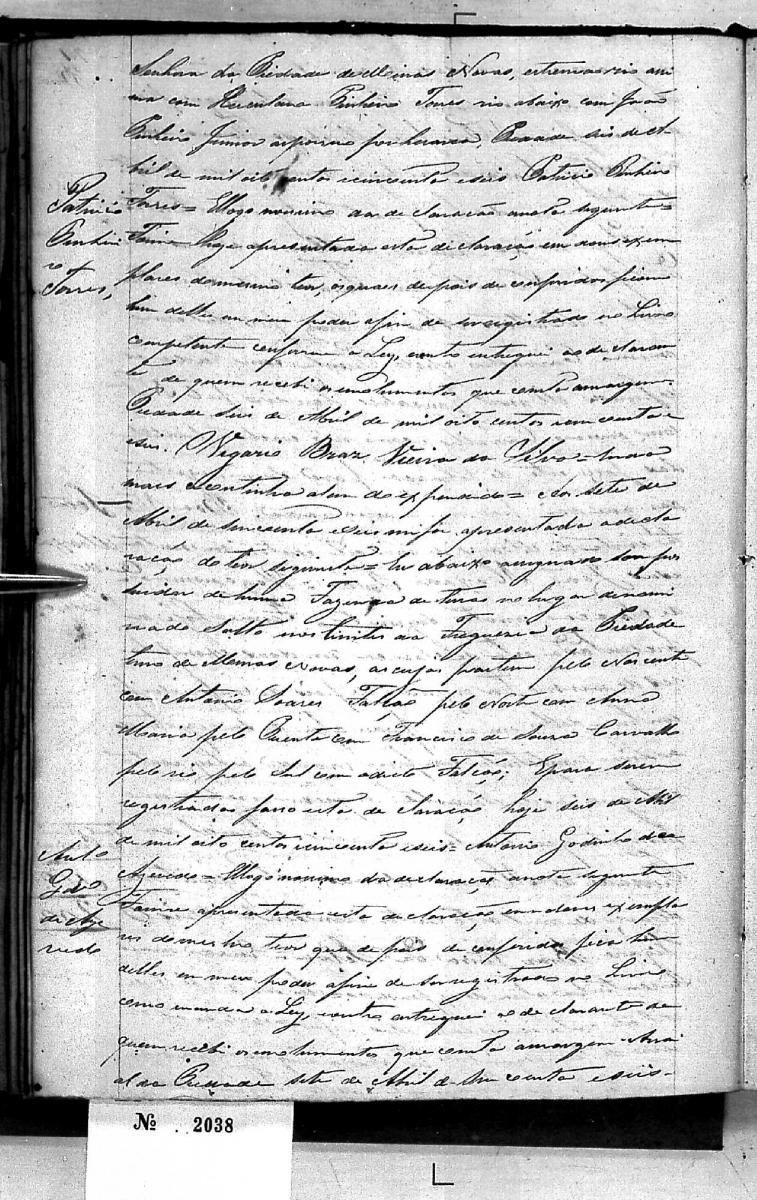 Senhora da Piedade de Minas Novas, estrema rio assi
ma com Herculana Pinheiro Torres rio abaixo com João
Pinheiro Junior as posuo por herança, Piedade seis de A
bril de mil oito centos e cincoenta e seis Patricio Pinheiro
Torres = E logo no mesmo da declaração a nota seguinte =
Foi me hoje apresentada esta declaração em dous exem
plares do mesmo teor, os quaes depois de conferidos ficou
hum delles em meu poder afim de ser registrado no Livro
competente conforme a Ley, outro entreguei ao declaran
te de quem recebi os emolumentos que consta a margem.
Piedade seis de Abril de mil oito centos e cincoenta e
seis. Vigario Braz Vieira da Silva = Nada
mais continha alem do expensido = Aos sete de
Abril de cincoenta e seis me foi apresentada a decla
ração do teor seguinte = Eu abaixo assignado sou pos
suidor de huma Fazenda de terras no lugar denomi
nado Salto nos limites da Freguezia da Piedade
termo de Minas Novas, as cujas partem pelo Nascente
com Antonio Soares Falcão pelo Norte com Anna
Maria pelo Poente com Francisco de Souza Carvalho
pelo rio pelo Sul com o dito Falcão; E para serem
registradas passo esta declaração hoje seis de Abril
de mil oito centos e cincoenta e seis = Antonio Godinho de
Azevedo = E logo no mesmo da declaração a nota seguinte
Foi me apresentada esta declaração em dous exempla
res do mesmo teor que depois de conferidos fica hum
delles em meu poder afim de ser registrado no Livro
como manda a Ley, outro entreguei ao declarante de
quem recebi os emolumentos que consta a margem Arrai
al da Piedade sete de Abril de cincoenta e seis =
Patricio
Pinhei
ro
Torres,
Anto
Godo
de Aze
vedo
Nº 2038